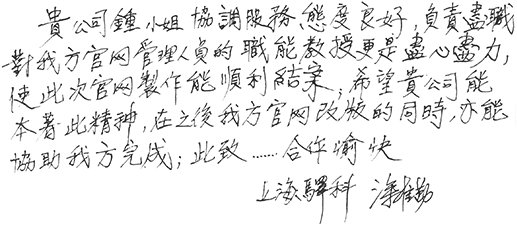 貴公司鍾小姐協調服務態度良好,負責盡職
對我方官网管理人員的職能教授更是盡心盡力,
使此次官网製作能順利結案;希望貴公司能
本著此精神,在之後我方官网改版的同時,亦能
協助我方完成;此致……合作愉快
上海驛科